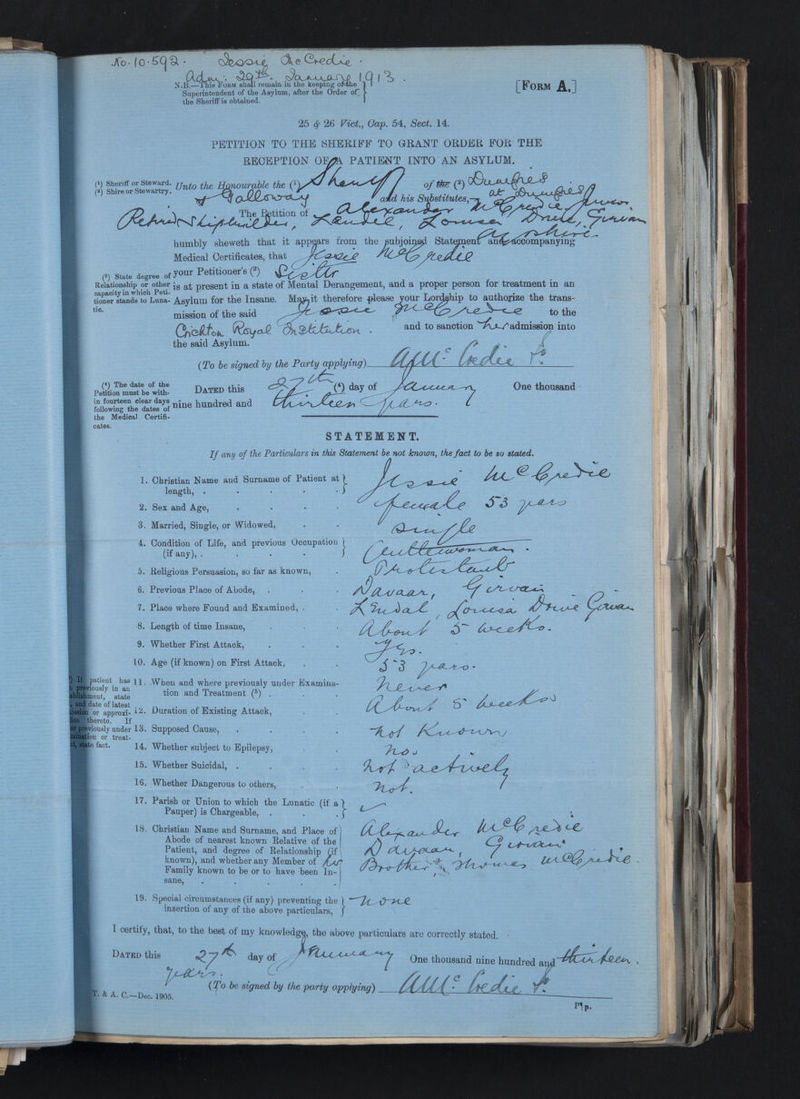 No. 10.592. Jessie McCredie.
Adm: 29th January 1913.
N.B.—This FORM shall remain in the keeping of the
Superintendent of the Asylum, after the Order of
the Sheriff is obtained.
[FORM A.]
25 & 26 Vict., Cap. 54, Sect. 14.
PETITION TO THE SHERIFF TO GRANT ORDER FOR THE
RECEPTION OF A PATIENT INTO AN ASYLUM.
(1) Sheriff or Steward.
(2) Shire or Stewartry.
Unto the Honourable the (1) Sheriff of the (2) Dumfries
& Galloway and his Substitutes, at Dumfries
The Petition of Alexander McCredie, Junior
Retired Shipbuilder, Kendal, Louisa Drive, Girvan
Ayrshire
humbly sheweth that it appears from the subjoined Statement and accompanying
Medical Certificates, that Jessie McCredie
(3) State degree of
Relationship or other
capacity in which Peti-
tioner stands to Luna-
tic.
your Petitioner's (3) Sister
is at present in a state of Mental Derangement, and a proper person for treatment in an
Asylum for the Insane. May it therefore please your Lordship to authorize the trans-
mission of the said Jessie McCredie to the
Crichton Royal Institution. and to sanction her admission into
the said Asylum.
(To be signed by the Party applying) A McCredie Jr.
(4) The date of the
Petition must be with-
in fourteen clear days
following the dates of
the Medical Certifi-
cates.
DATED this 27th (4) day of January One thousand
nine hundred and thirteen years.
STATEMENT.
If any of the Particulars in this Statement be not known, the fact to be so stated.
1. Christian Name and Surname of Patient at
length, . Jessie McCredie
2. Sex and Age, female 53 years
3. Married, Single, or Widowed, Single
4. Condition of Life, and previous Occupation
(if any), . Gentlewoman.
5. Religious Persuasion, so far as known, Protestant
6. Previous Place of Abode, . Davaar, Girvan
7. Place where Found and Examined, . Kendal, Louisa Drive Girvan
8. Length of time Insane, About 5 weeks.
9. Whether First Attack, Yes.
10. Age (if known) on First Attack, 53 years.
patient has
previously in an
establishment, state
and date of latest
or approxi-
thereto. If
previously under
or treat-
state fact.
11. When and where previously under Examina-
tion and Treatment (5) . Never
12. Duration of Existing Attack, About 5 weeks
13. Supposed Cause, not known
14. Whether subject to Epilepsy, no.
15. Whether Suicidal, . not actively
16. Whether Dangerous to others, not.
17. Parish or Union to which the Lunatic (if a
Pauper) is Chargeable, .
18. Christian Name and Surname, and Place of
Abode of nearest known Relative of the
Patient, and degree of Relationship (if
known), and whether any Member of her
Family known to be or to have been In-
sane,
Alexander McCredie
Davaar, Girvan
Brother Thomas McCredie.
19. Special circumstances (if any) preventing the
insertion of any of the above particulars, None
I certify, that, to the best of my knowledge, the above particulars are correctly stated.
DATED this 27th day of January One thousand nine hundred and thirteen.
years.
(To be signed by the party applying) A McCredie Jr.
T. & A. C.—Dec. 1905.